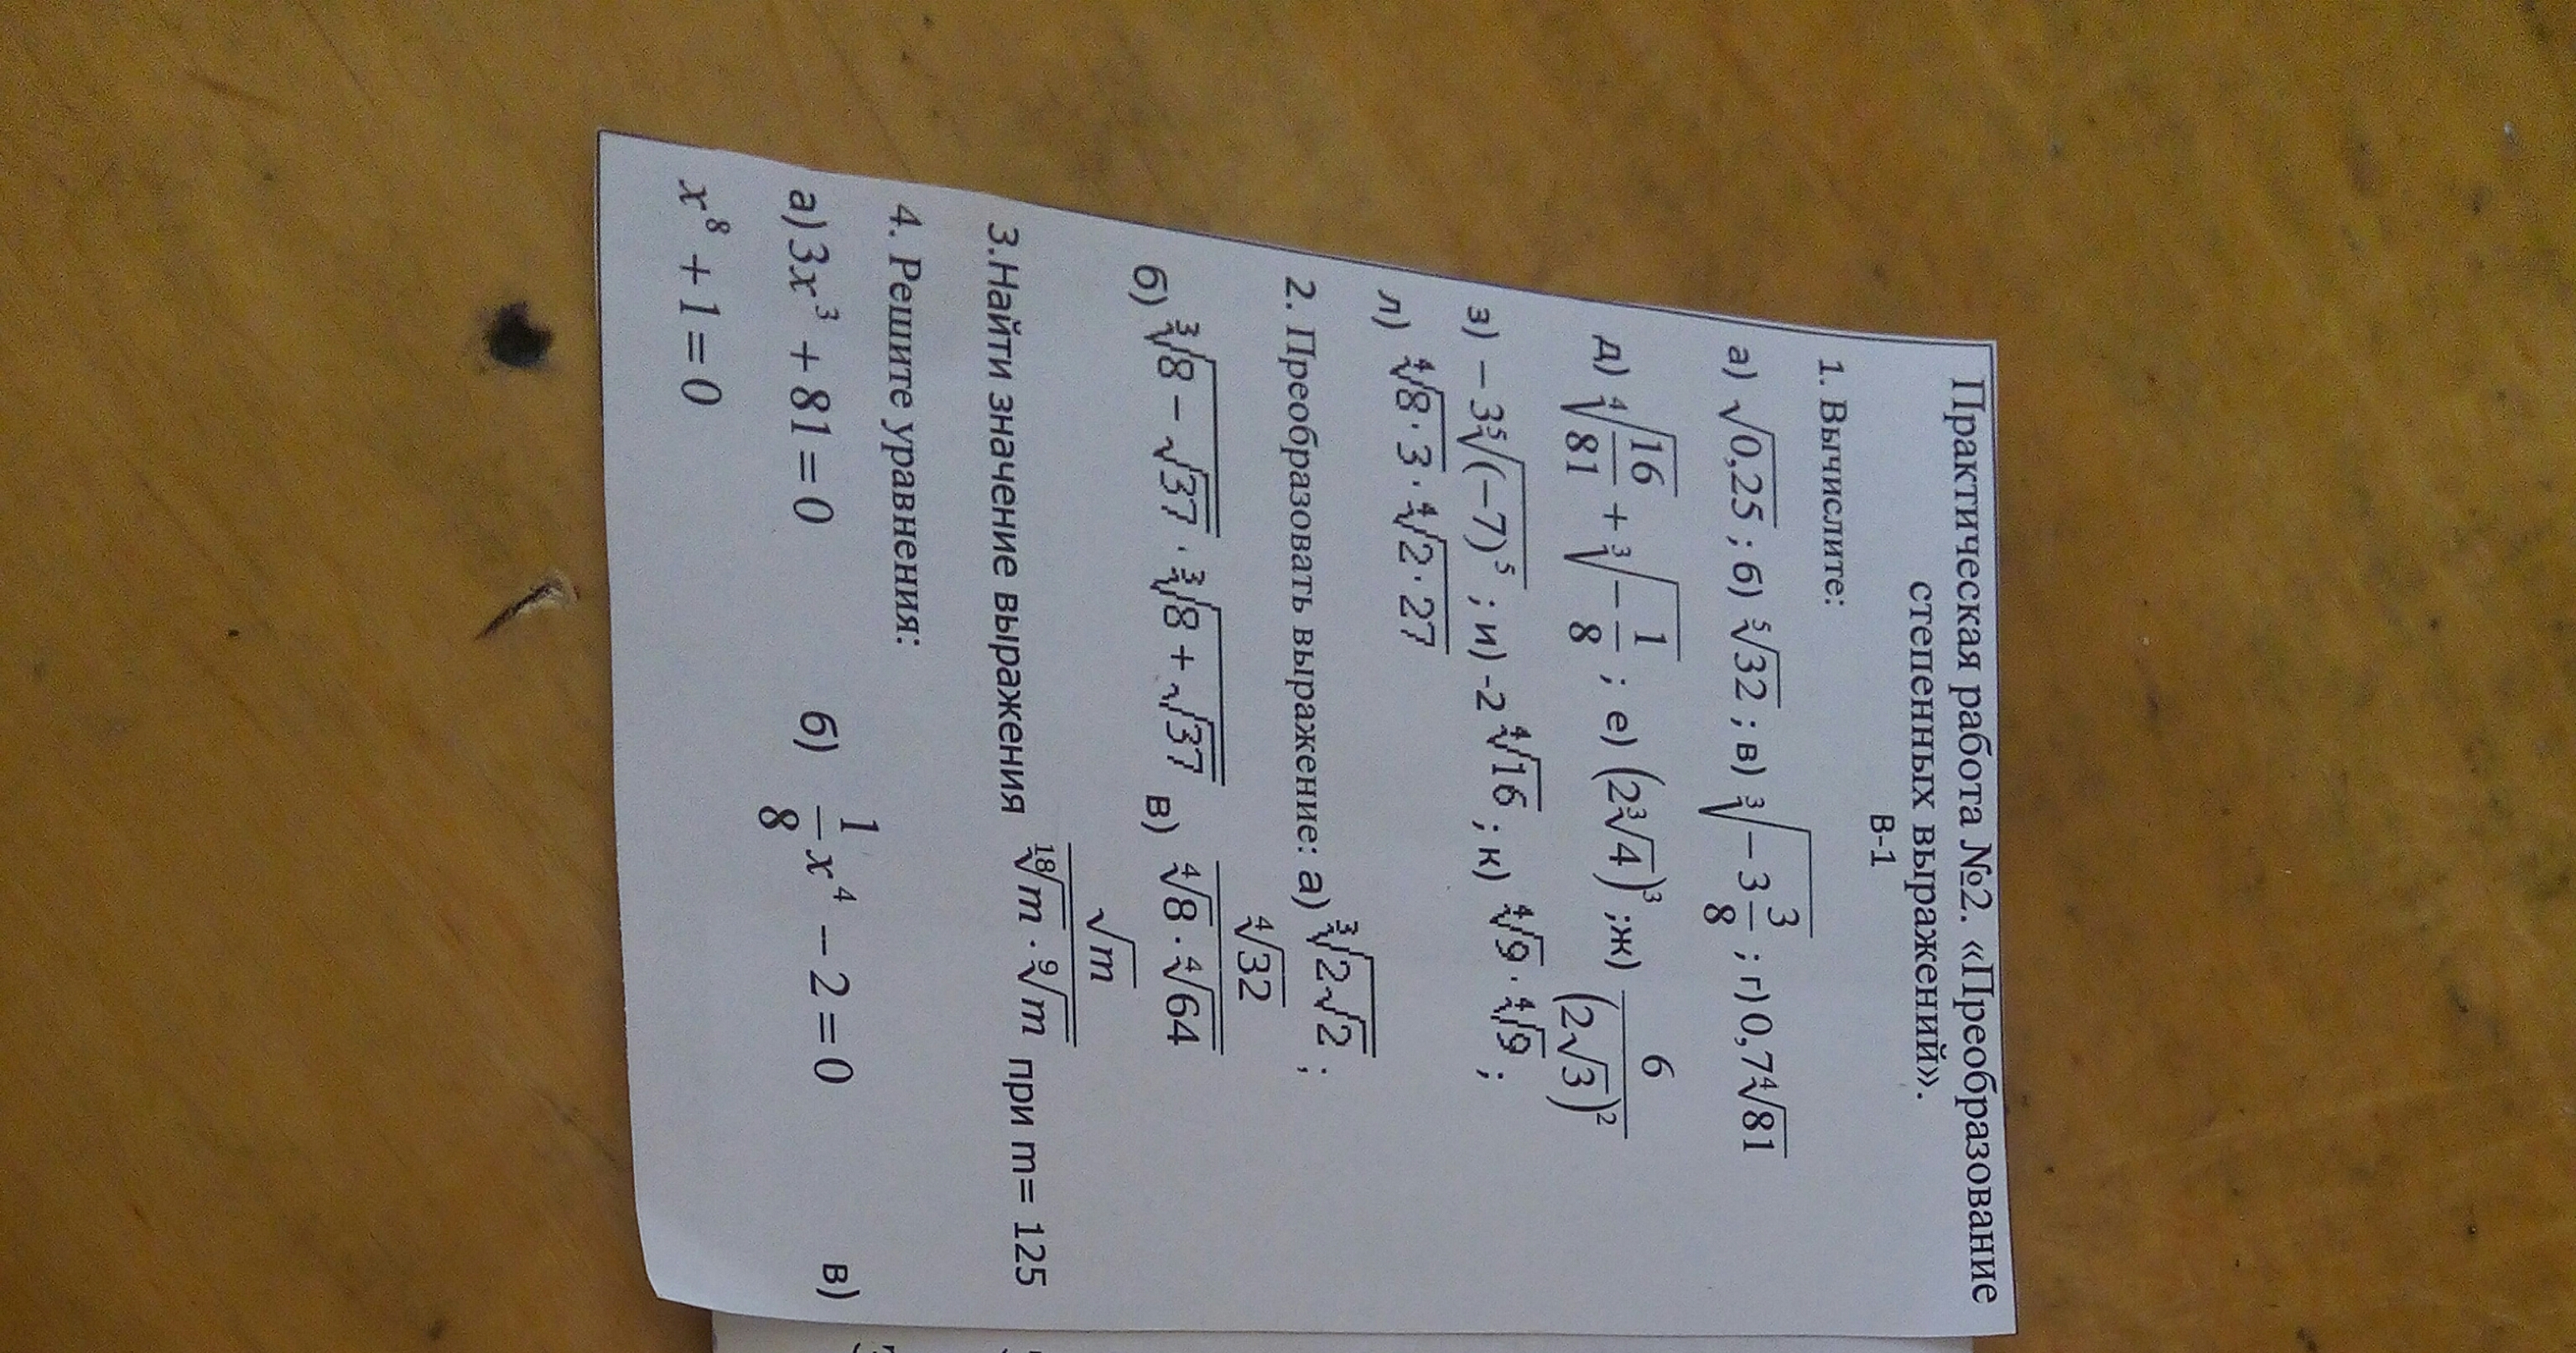 Практическая работа №2. «Преобразование
степенных выражений».
В-1
1. Вычислите:
а) √0,25 ; б) ⁵√32 ; в) ³√(−3 3/8) ; г) 0,7⁴√81
д) ⁴√(16/81) + ³√(−1/8) ; е) (2³√4)³ ;ж) 6/(2√3)²
з) −3⁵√((−7)⁵) ; и) -2 ⁴√16 ; к) ⁴√9 · ⁴√9 ;
л) ⁴√(8·3) · ⁴√(2·27)
2. Преобразовать выражение: а) ³√(2√2) ;
б) ³√(8 − √37) · ³√(8 + √37) в) (⁴√8 · ⁴√64)/⁴√32
3.Найти значение выражения √m/(¹⁸√m · ⁹√m) при m= 125
4. Решите уравнения:
а) 3x³ + 81 = 0 б) 1/8 x⁴ − 2 = 0 в)
x⁸ + 1 = 0